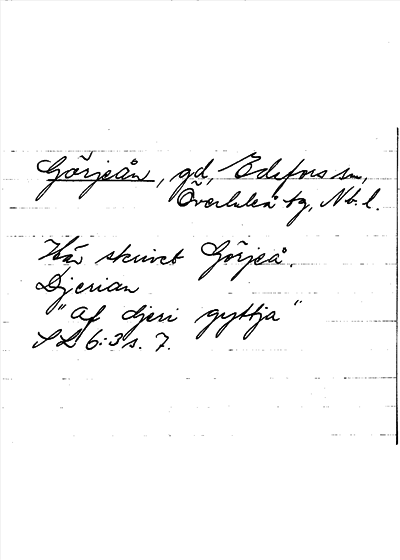 Görjeån, gd, Edefors sn,
Överluleå tg, Nb. l.
Här skrivet Görjeå.
Djerian
"af djeri gyttja"
SL 6:3 s. 7.